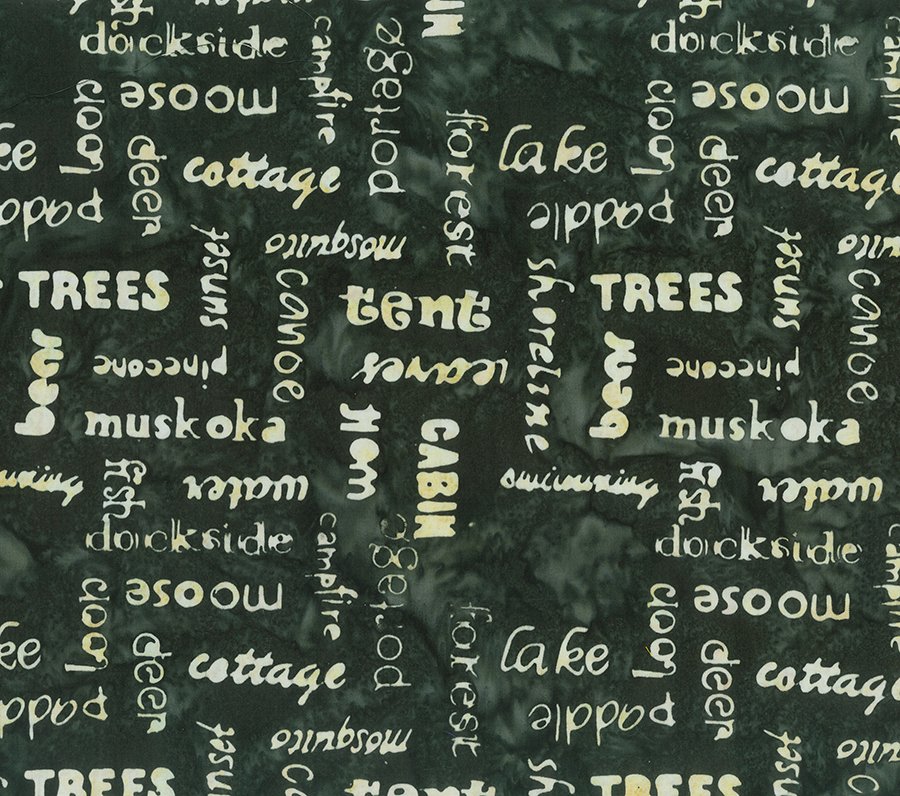 fish
CABIN
dockside
campfire
portage
dockside
campfire
loon
moose
loon
moose
forest
lake
ke
deer
cottage
lake
deer
cottage
paddle
paddle
sunset
mosquito
sunset
TREES
canoe
tent
shoreline
TREES
canoe
bear
pinecone
leaves
bear
pinecone
muskoka
CABIN
muskoka
fish
water
swimming
fish
water
dockside
campfire
portage
dockside
campfire
loon
moose
forest
loon
moose
ke
deer
cottage
lake
deer
cottage
paddle
paddle
sunset
mosquito
sunset
TREES
tent
TREES